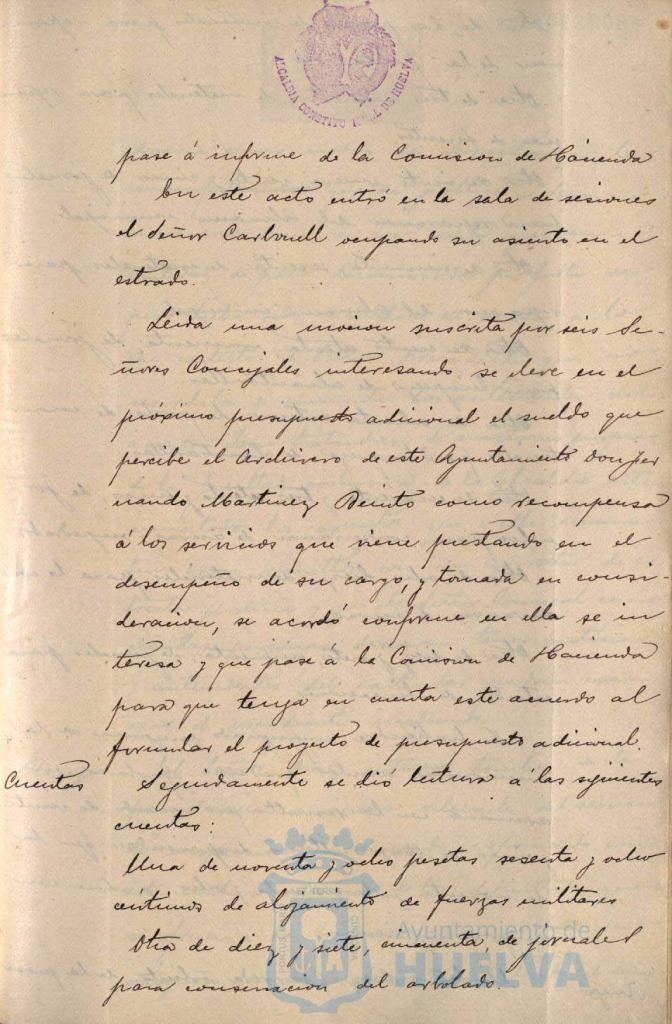 ALCALDIA CONSTITUCIONAL DE HUELVA
pase á informe de la Comision de Hacienda
En este acto entró en la sala de sesiones
el Señor Carbonell ocupando su asiento en el
estrado.
Leida una mocion suscrita por seis Se-
ñores Concejales interesando se eleve en el
próximo presupuesto adicional el sueldo que
percibe el Archivero de este Ayuntamiento Don Fer
nando Martinez Beinto como recompensa
á los servicios que viene prestando en el
desempeño de su cargo, y tomada en consi-
deracion, se acordó conforme en ella se in
teresa y que pase á la Comision de Hacienda
para que tenga en cuenta este acuerdo al
formular el proyecto de presupuesto adicional.
Cuentas Seguidamente se dió lectura a las siguientes
cuentas:
Una de noventa y ocho pesetas sesenta y ocho
centimos de alojamiento de fuerzas militares
Otra de diez y siete, cincuenta, de jornales
para conservacion del arbolado.
Ayuntamiento de
HUELVA